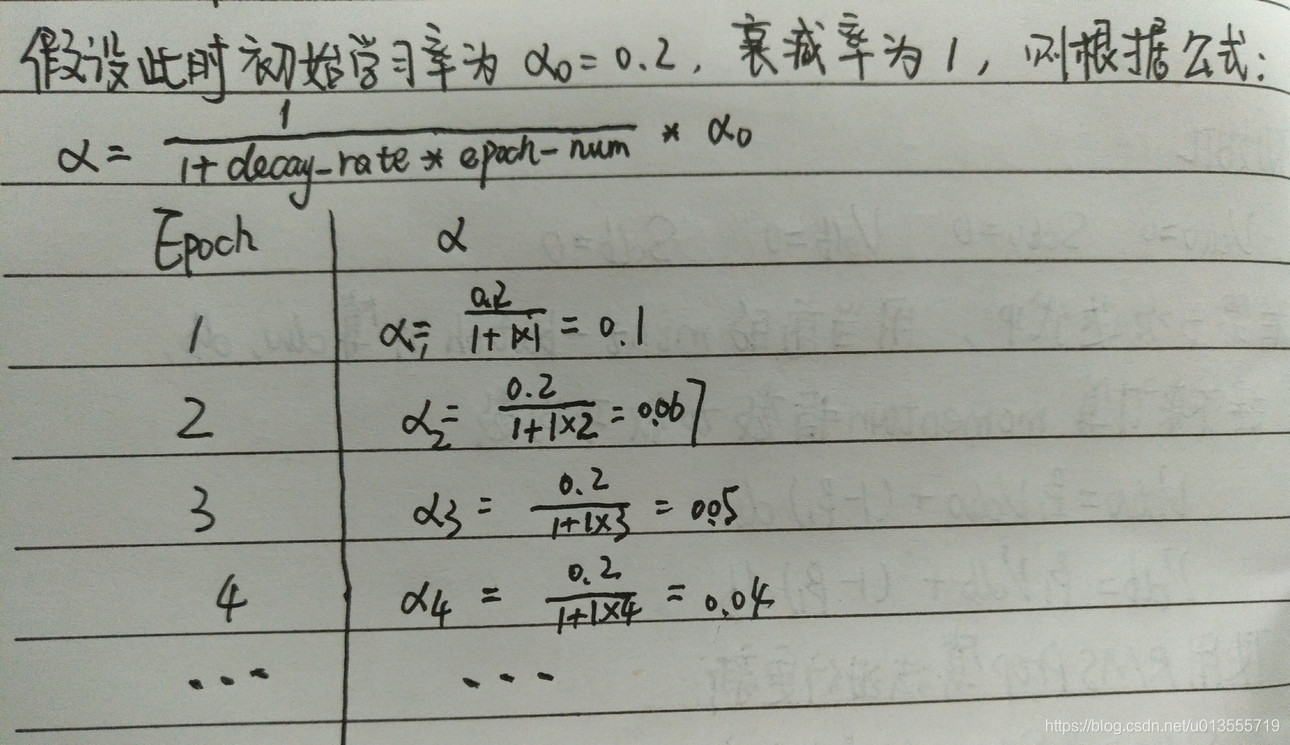 假设此时初始学习率为 α₀ = 0.2, 衰减率为 1, 则根据公式:
α = 1 / (1 + decay-rate * epoch-num) * α₀
Epoch α
1 α₁ = 0.2 / (1+1×1) = 0.1
2 α₂ = 0.2 / (1+1×2) = 0.067
3 α₃ = 0.2 / (1+1×3) = 0.05
4 α₄ = 0.2 / (1+1×4) = 0.04
... ...
https://blog.csdn.net/u013555719